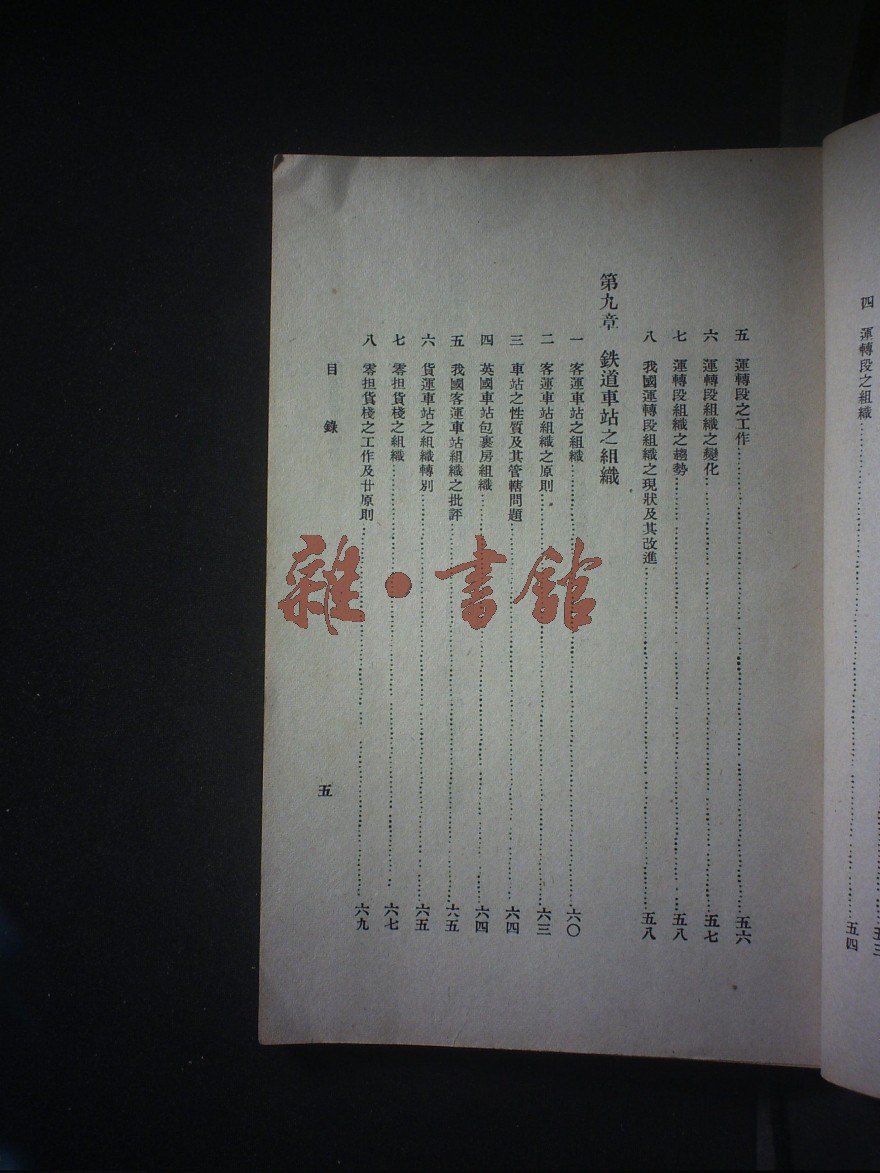 四　運轉段之組織……五四
五　運轉段之工作……五六
六　運轉段組織之變化……五七
七　運轉段組織之趨勢……五八
八　我國運轉段組織之現狀及其改進……五八
第九章　鉄道車站之組織
一　客運車站之組織……六〇
二　客運車站組織之原則……六三
三　車站之性質及其管轄問題……六四
四　英國車站包裹房組織……六四
五　我國客運車站組織之批評……六五
六　貨運車站之組織轉別……六五
七　零担貨棧之組織……六七
八　零担貨棧之工作及廿原則……六九
目錄
五
雜·書館